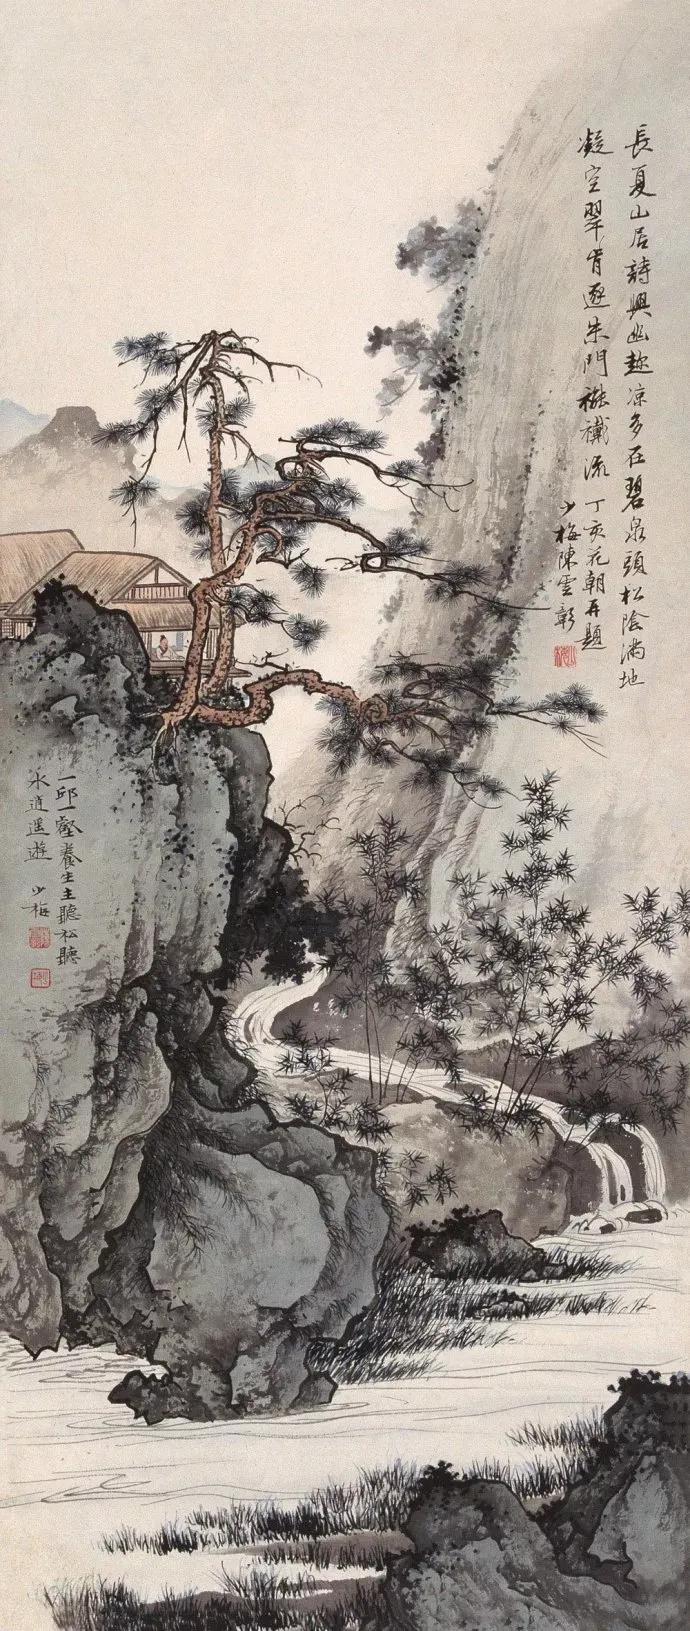 長夏山居詩興幽趂凉多在碧泉頭松陰滿地
凝空翠肯逐朱門褦襶流 丁亥花朝再題
少梅陳雲彰
一邱一壑養生主聽松聽
水逍遥遊 少梅